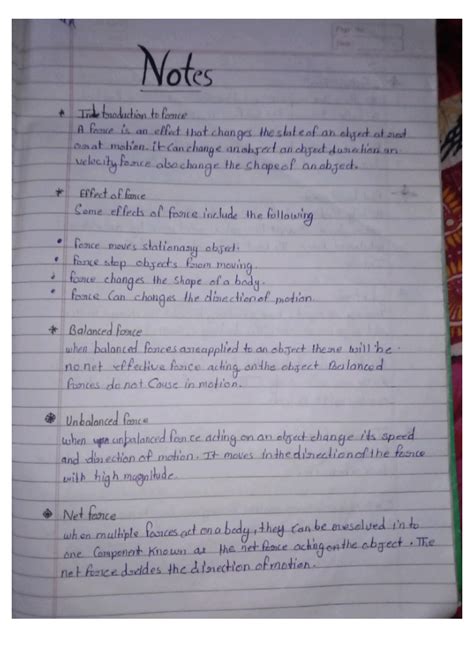 Notes
* Introduction to force
A force is an effect that changes the state of an object at rest
or at motion. it can change an object an object direction or
velocity force also change the shape of an object.
* Effect of force
Some effects of force include the following
• force moves stationary object.
• force stop objects from moving.
• force changes the shape of a body.
• force can changes the direction of motion.
* Balanced force
when balanced forces are applied to an object there will be
no net effective force acting on the object Balanced
forces do not cause in motion.
* Unbalanced force
when unbalanced force acting on an object change its speed
and direction of motion. It moves in the direction of the force
with high magnitude.
* Net force
when multiple forces act on a body, they can be resolved in to
one componet known as the net force acting on the object. The
net force decides the direction of motion.